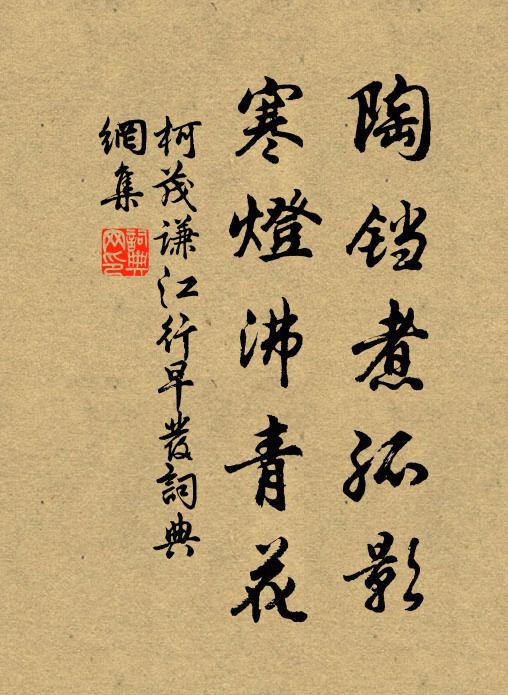 陶铛煮孤影
寒燈沸青花
柯茂谦江行早發詞典
網集
詞典
网印